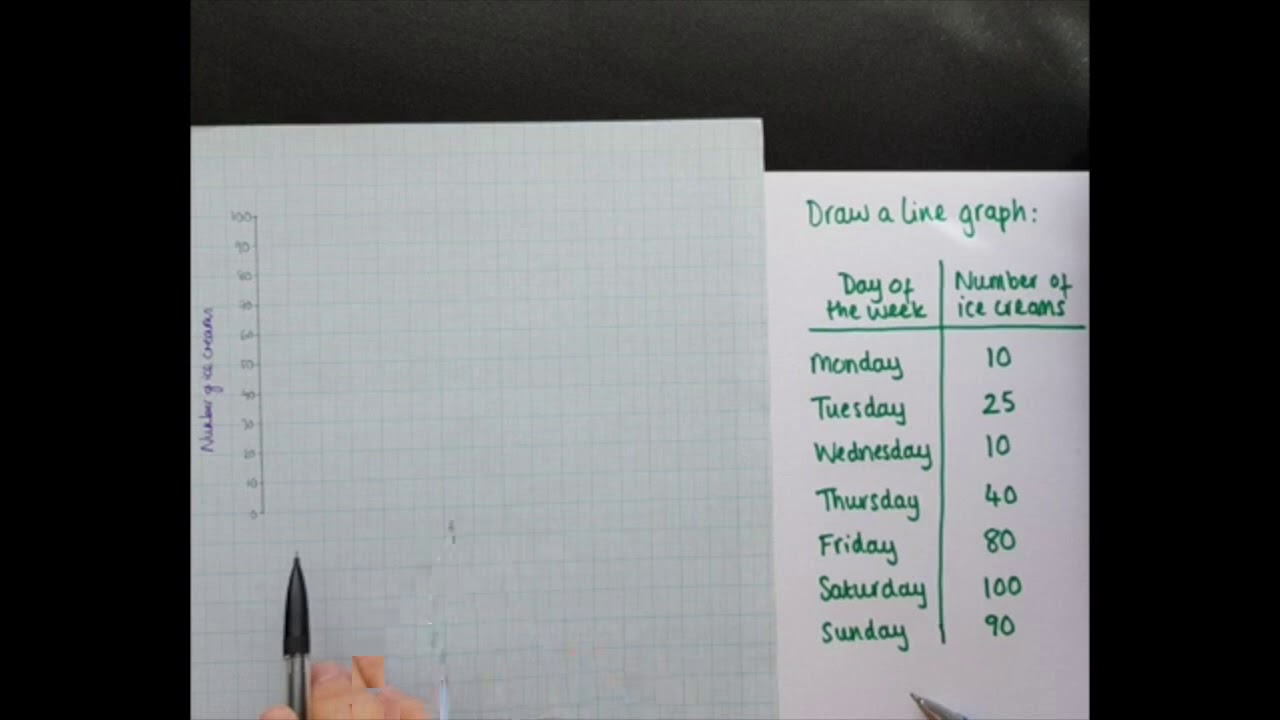 100
90
80
70
60
50
40
30
20
10
0
Number of ice creams
Draw a line graph:
Day of the week | Number of ice creams
Monday 10
Tuesday 25
Wednesday 10
Thursday 40
Friday 80
Saturday 100
Sunday 90